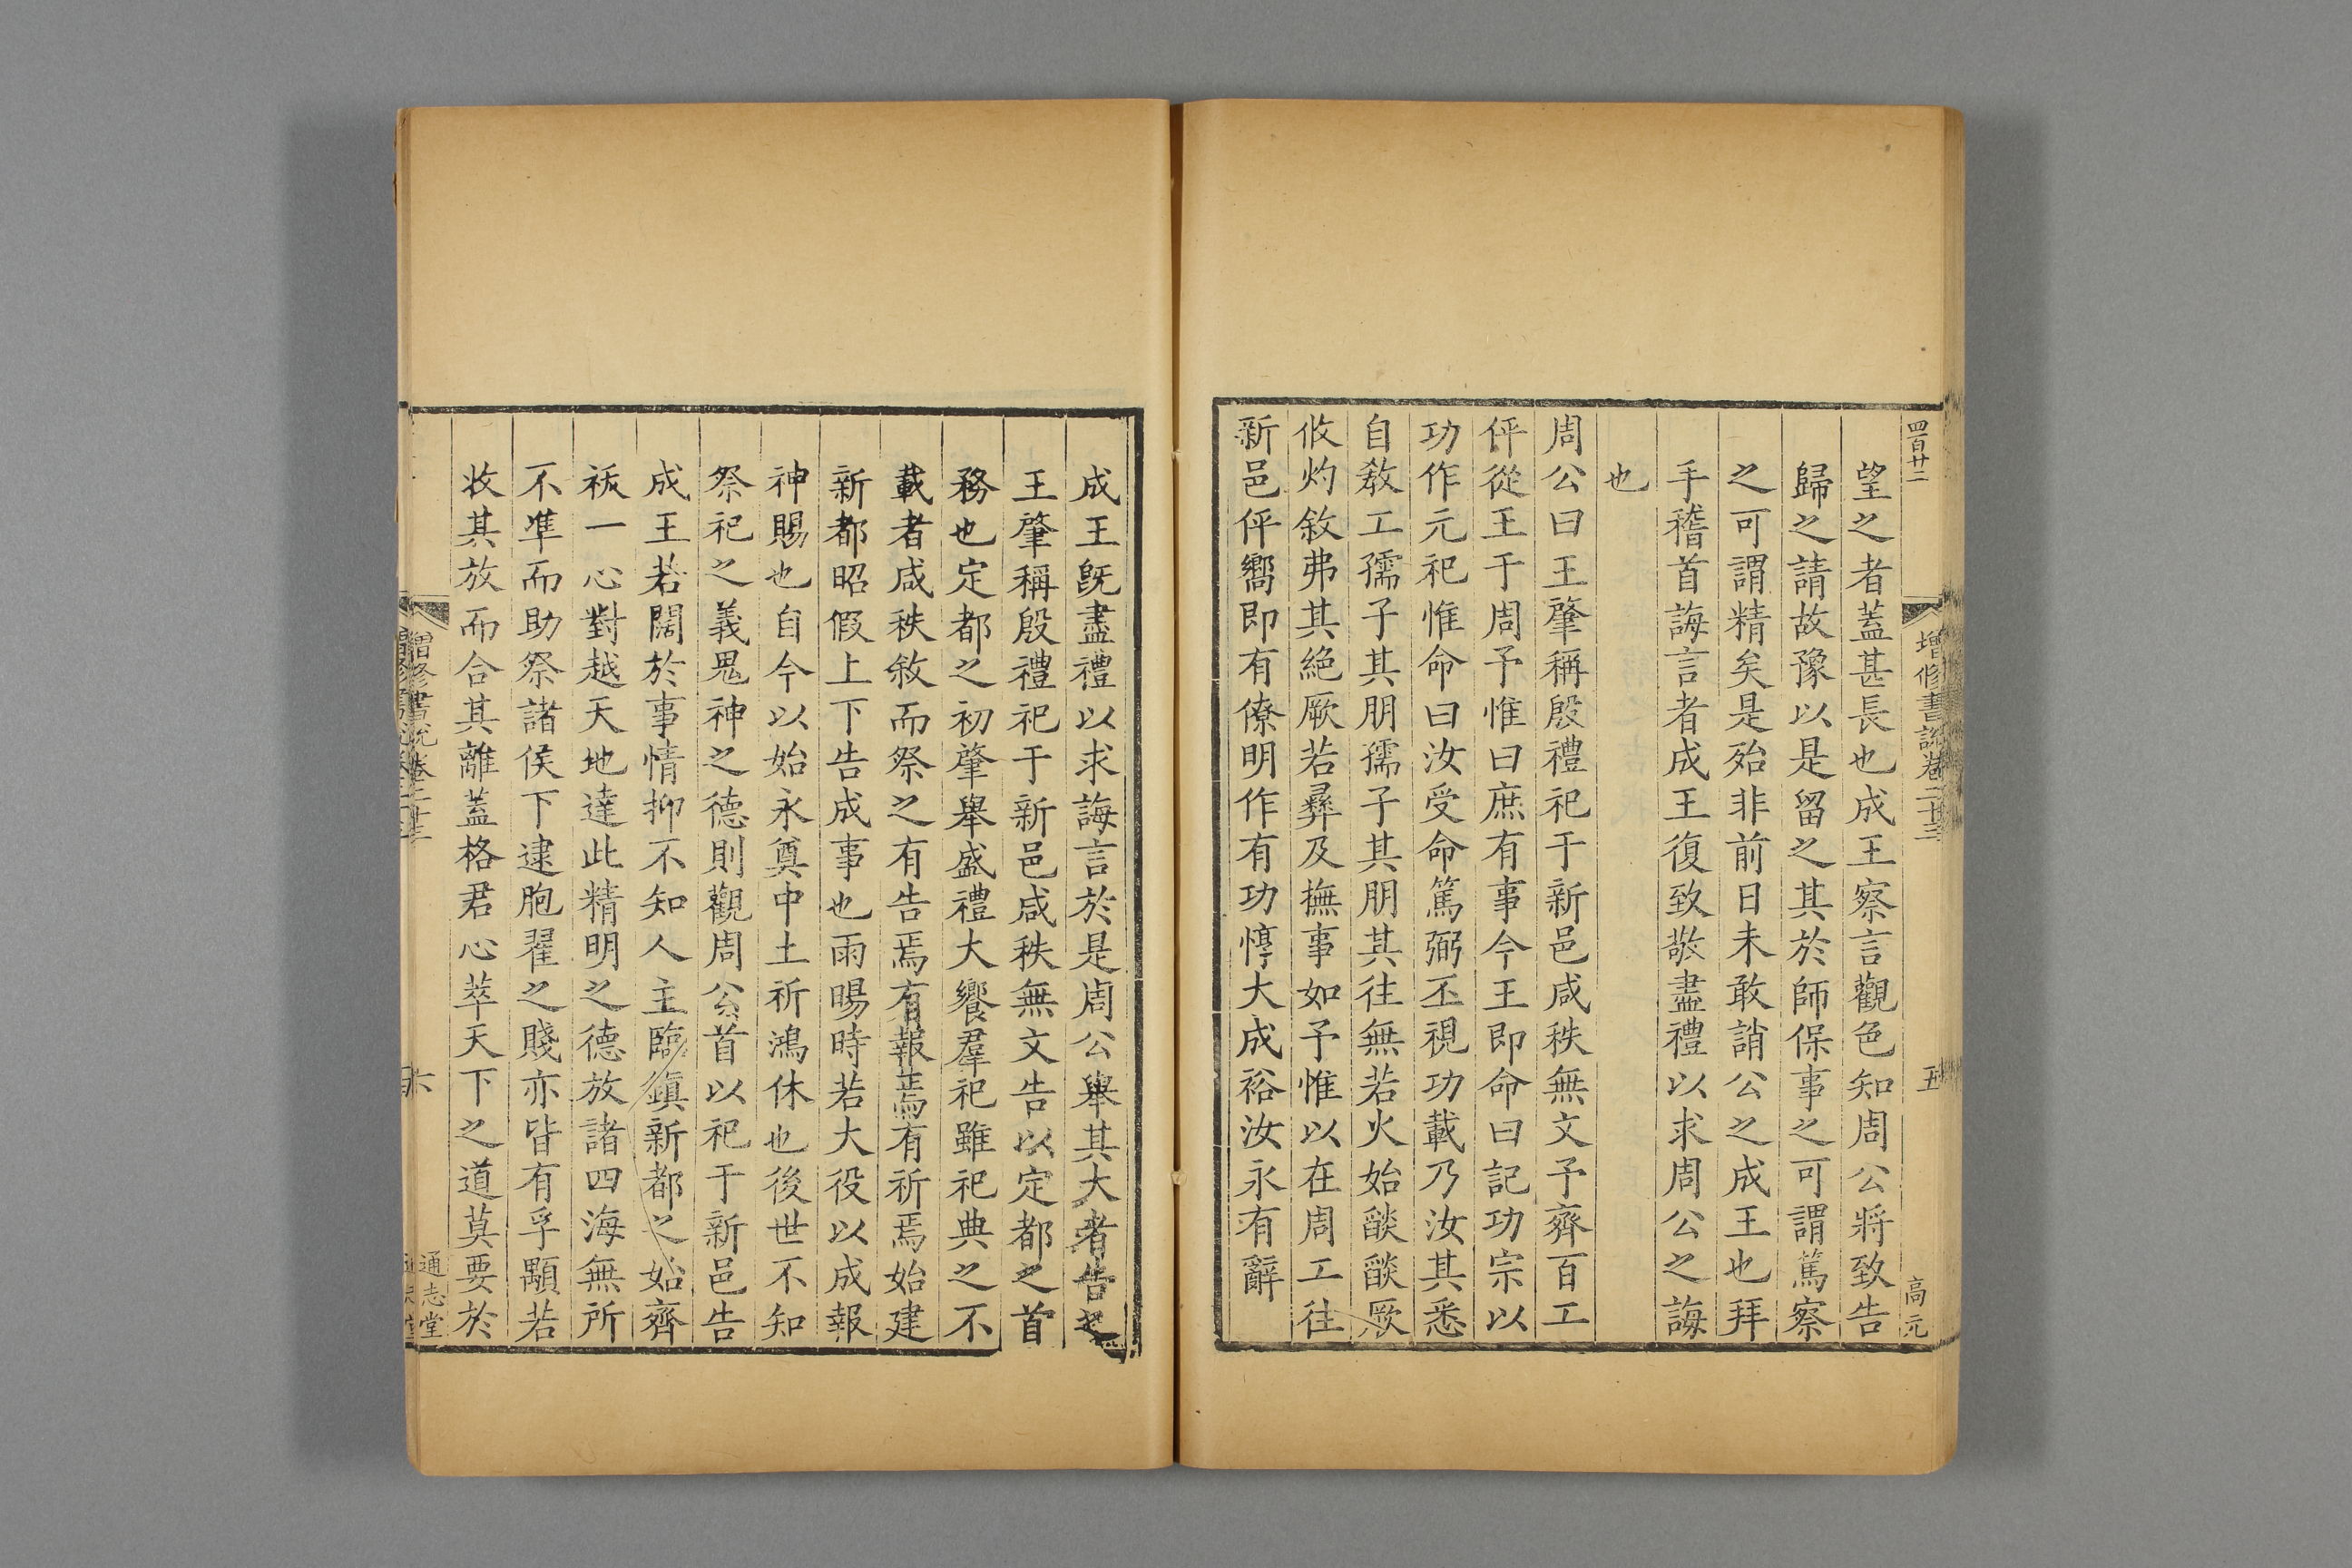 四百廿二
增修書說卷二十三
五
高元
望之者蓋甚長也成王察言觀色知周公將致告
歸之請故豫以是留之其於師保事之可謂篤察
之可謂精矣是殆非前日未敢誚公之成王也拜
手稽首誨言者成王復致敬盡禮以求周公之誨
也
周公曰王肇稱殷禮祀于新邑咸秩無文予齊百工
伻從王于周予惟曰庶有事今王即命曰記功宗以
功作元祀惟命曰汝受命篤弼丕視功載乃汝其悉
自敎工孺子其朋孺子其朋其往無若火始燄燄厥
攸灼敘弗其絕厥若彝及撫事如予惟以在周工往
新邑伻嚮即有僚明作有功惇大成裕汝永有辭
成王旣盡禮以求誨言於是周公舉其大者告之
王肇稱殷禮祀于新邑咸秩無文告以定都之首
務也定都之初肇舉盛禮大饗羣祀雖祀典之不
載者咸秩敘而祭之有告焉有報焉有祈焉始建
新都昭假上下告成事也雨暘時若大役以成報
神賜也自今以始永奠中土祈鴻休也後世不知
祭祀之義鬼神之德則觀周公首以祀于新邑告
成王若闊於事情抑不知人主臨鎭新都之始齊
祓一心對越天地達此精明之德放諸四海無所
不準而助祭諸侯下逮胞翟之賤亦皆有孚顒若
收其放而合其離蓋格君心萃天下之道莫要於
增修書說卷二十三
六
通志堂